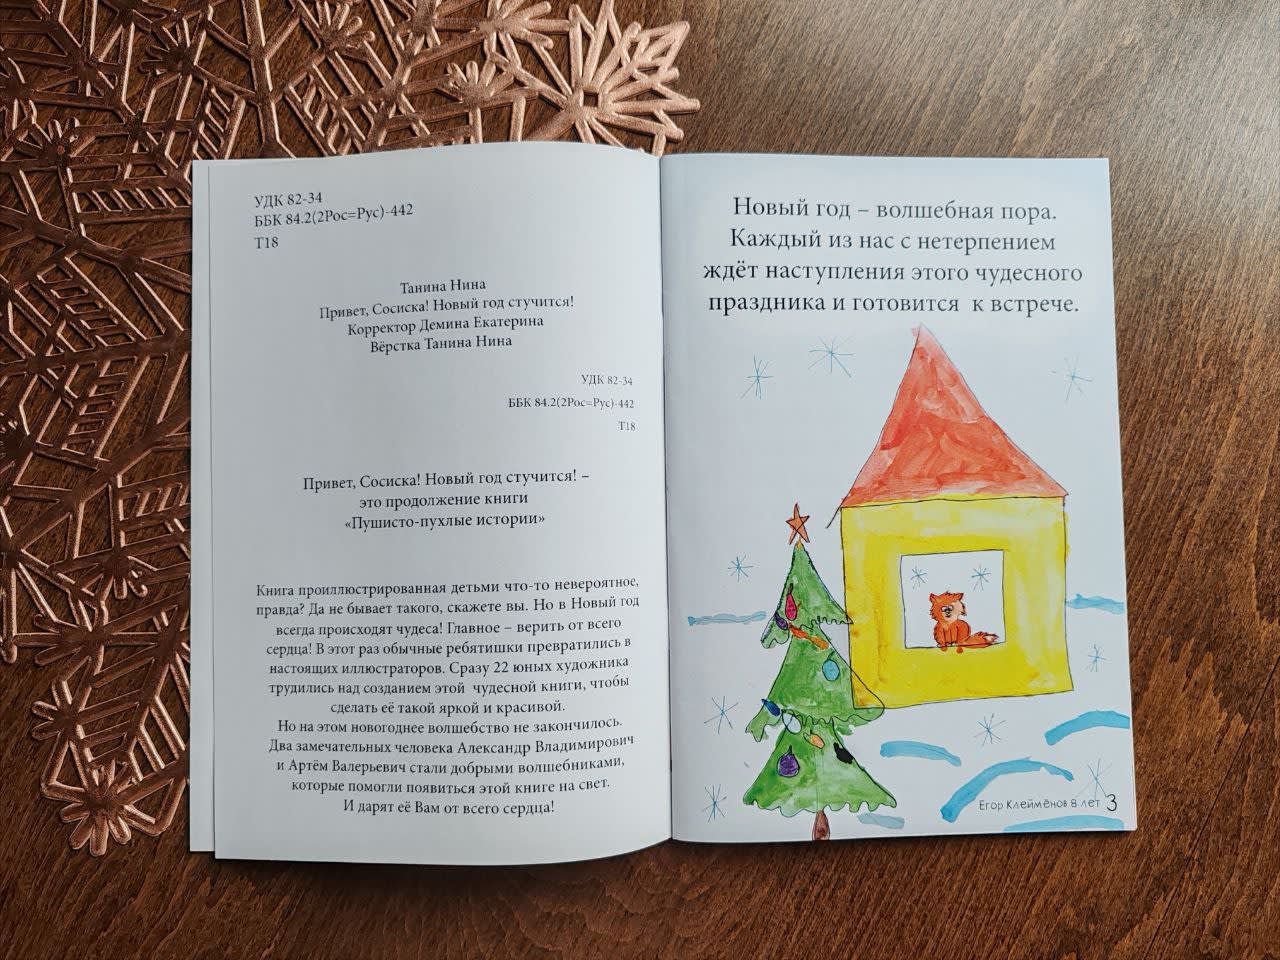 УДК 82-34
ББК 84.2(2Рос=Рус)-442
Т18
Танина Нина
Привет, Сосиска! Новый год стучится!
Корректор Демина Екатерина
Вёрстка Танина Нина
УДК 82-34
ББК 84.2(2Рос=Рус)-442
Т18
Привет, Сосиска! Новый год стучится! –
это продолжение книги
«Пушисто-пухлые истории»
Книга проиллюстрированная детьми что-то невероятное,
правда? Да не бывает такого, скажете вы. Но в Новый год
всегда происходят чудеса! Главное – верить от всего
сердца! В этот раз обычные ребятишки превратились в
настоящих иллюстраторов. Сразу 22 юных художника
трудились над созданием этой чудесной книги, чтобы
сделать её такой яркой и красивой.
Но на этом новогоднее волшебство не закончилось.
Два замечательных человека Александр Владимирович
и Артём Валерьевич стали добрыми волшебниками,
которые помогли появиться этой книге на свет.
И дарят её Вам от всего сердца!
Новый год – волшебная пора.
Каждый из нас с нетерпением
ждёт наступления этого чудесного
праздника и готовится к встрече.
Егор Клеймёнов 8 лет 3